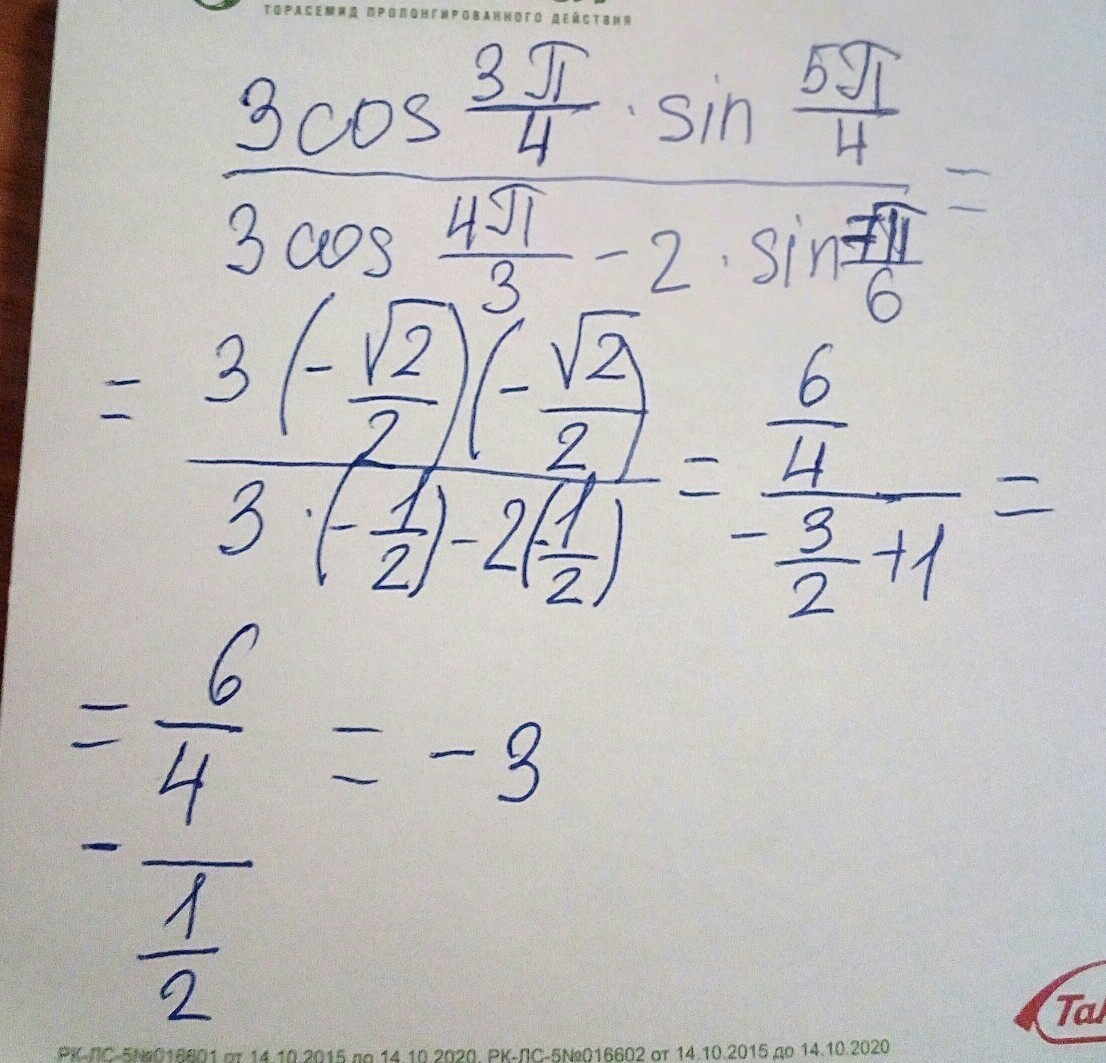 ТОРАСЕМИД ПРОЛОНГИРОВАННОГО ДЕЙСТВИЯ
3cos 3π/4 · sin 5π/4 =
3cos 4π/3 - 2 · sin 7π/6
= 3(-√2/2)(-√2/2) = 6/4 =
3·(-1/2)-2(-1/2) -3/2+1
= 6/4 = -3
- 1/2
РК-ЛС-5№016601 от 14.10.2015 до 14.10.2020, РК-ЛС-5№016602 от 14.10.2015 до 14.10.2020